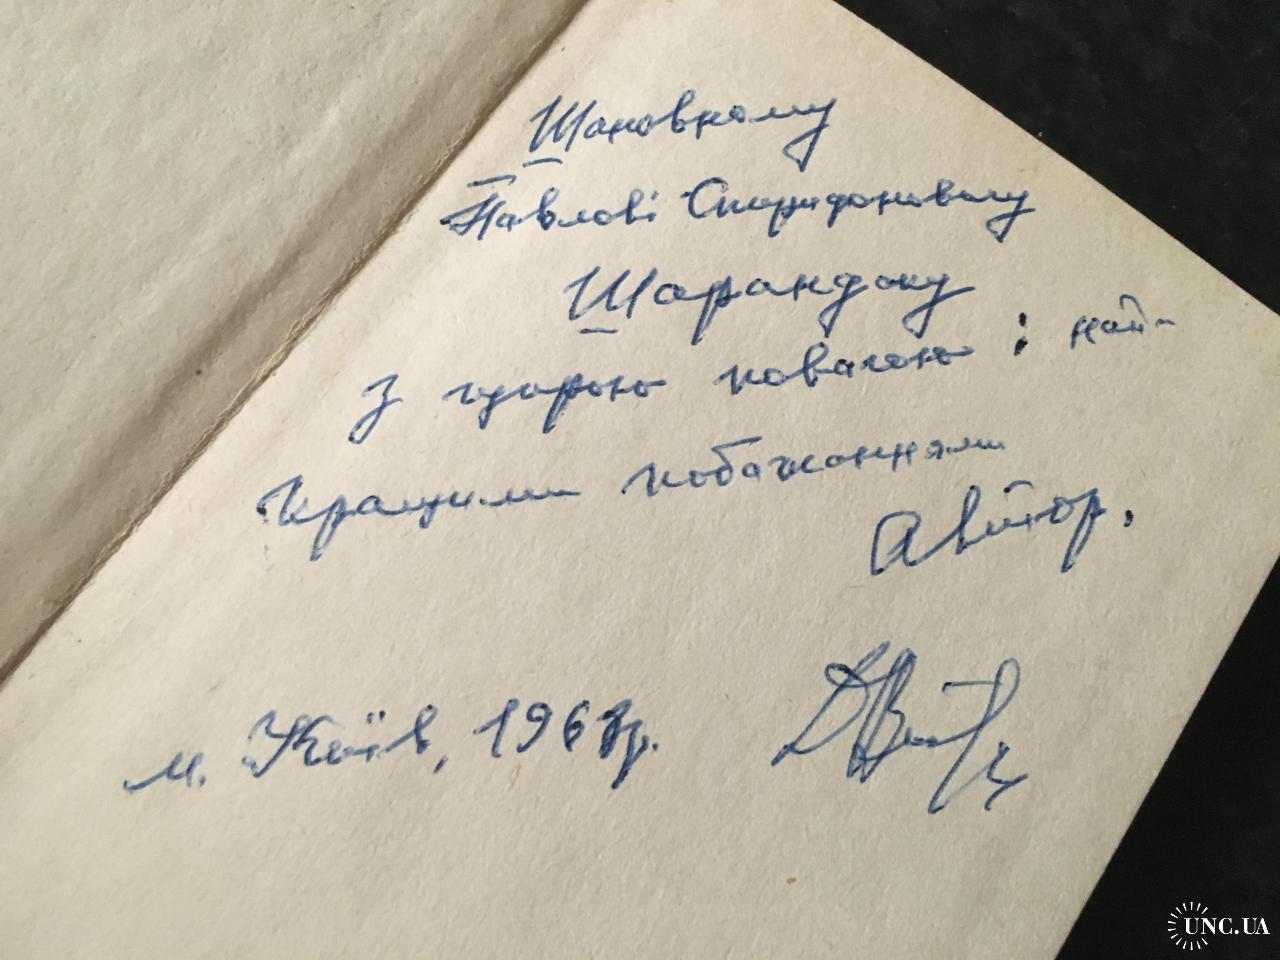 Шановному
Павлові Спиридоновичу
Шарандаку
З щирою повагою і най-
кращими побажаннями
Автор.
м. Київ, 196 р.
UNC.UA